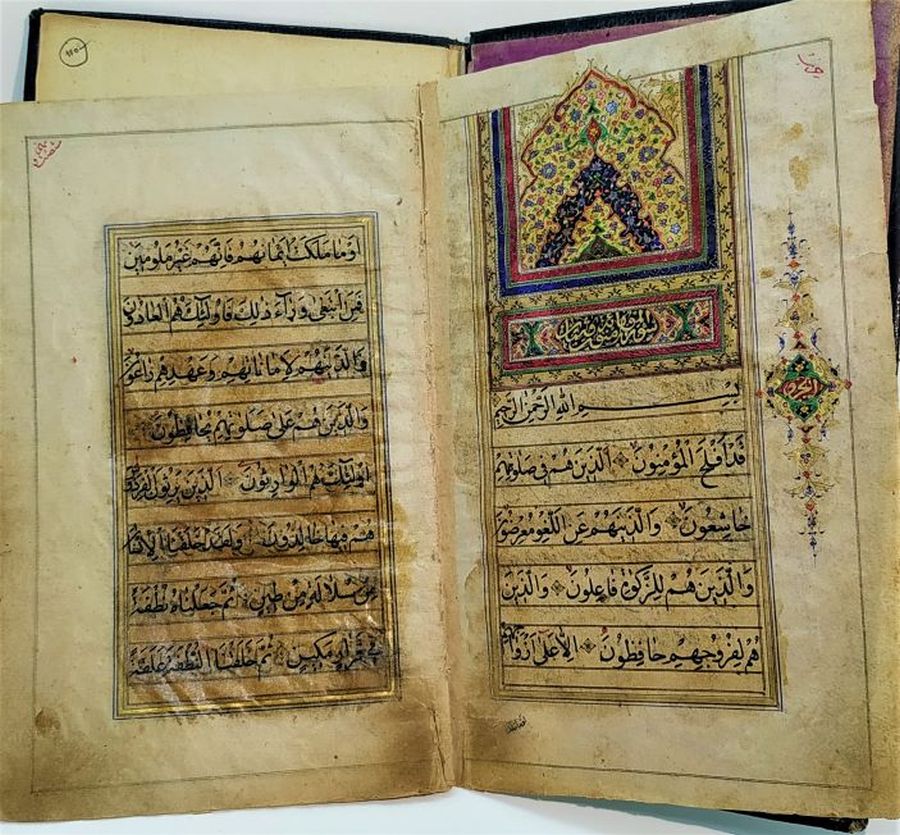 الجزء
بِسْمِ اللهِ الرَّحْمٰنِ الرَّحِيمِ
قَدْ اَفْلَحَ الْمُؤْمِنُونَ اَلَّذِينَ هُمْ فِى صَلٰوتِهِمْ
خَاشِعُونَ وَالَّذِينَهُمْ عَنِ اللَّغْوِ مُعْرِضُونَ
وَالَّذِينَ هُمْ لِلزَّكٰوةِ فَاعِلُونَ وَالَّذِينَ
هُمْ لِفُرُوجِهِمْ حَافِظُونَ اِلَّا عَلٰى اَزْوَاجِهِمْ
اَوْمَا مَلَكَتْ اَيْمَانُهُمْ فَاِنَّهُمْ غَيْرُ مَلُومِينَ
فَمَنِ ابْتَغٰى وَرَآءَ ذٰلِكَ فَاُولٰئِكَ هُمُ الْعَادُونَ
وَالَّذِينَهُمْ لِاَمَانَاتِهِمْ وَعَهْدِهِمْ رَاعُونَ
وَالَّذِينَ هُمْ عَلٰى صَلَوٰتِهِمْ يُحَافِظُونَ
اُولٰئِكَ هُمُ الْوَارِثُونَ اَلَّذِينَ يَرِثُونَ الْفِرْدَوْسَ
هُمْ فِيهَا خَالِدُونَ وَلَقَدْ خَلَقْنَا الْاِنْسَانَ
مِنْ سُلَالَةٍ مِنْ طِينٍ ثُمَّ جَعَلْنَاهُ نُطْفَةً
فِى قَرَارٍ مَكِينٍ ثُمَّ خَلَقْنَا النُّطْفَةَ عَلَقَةً